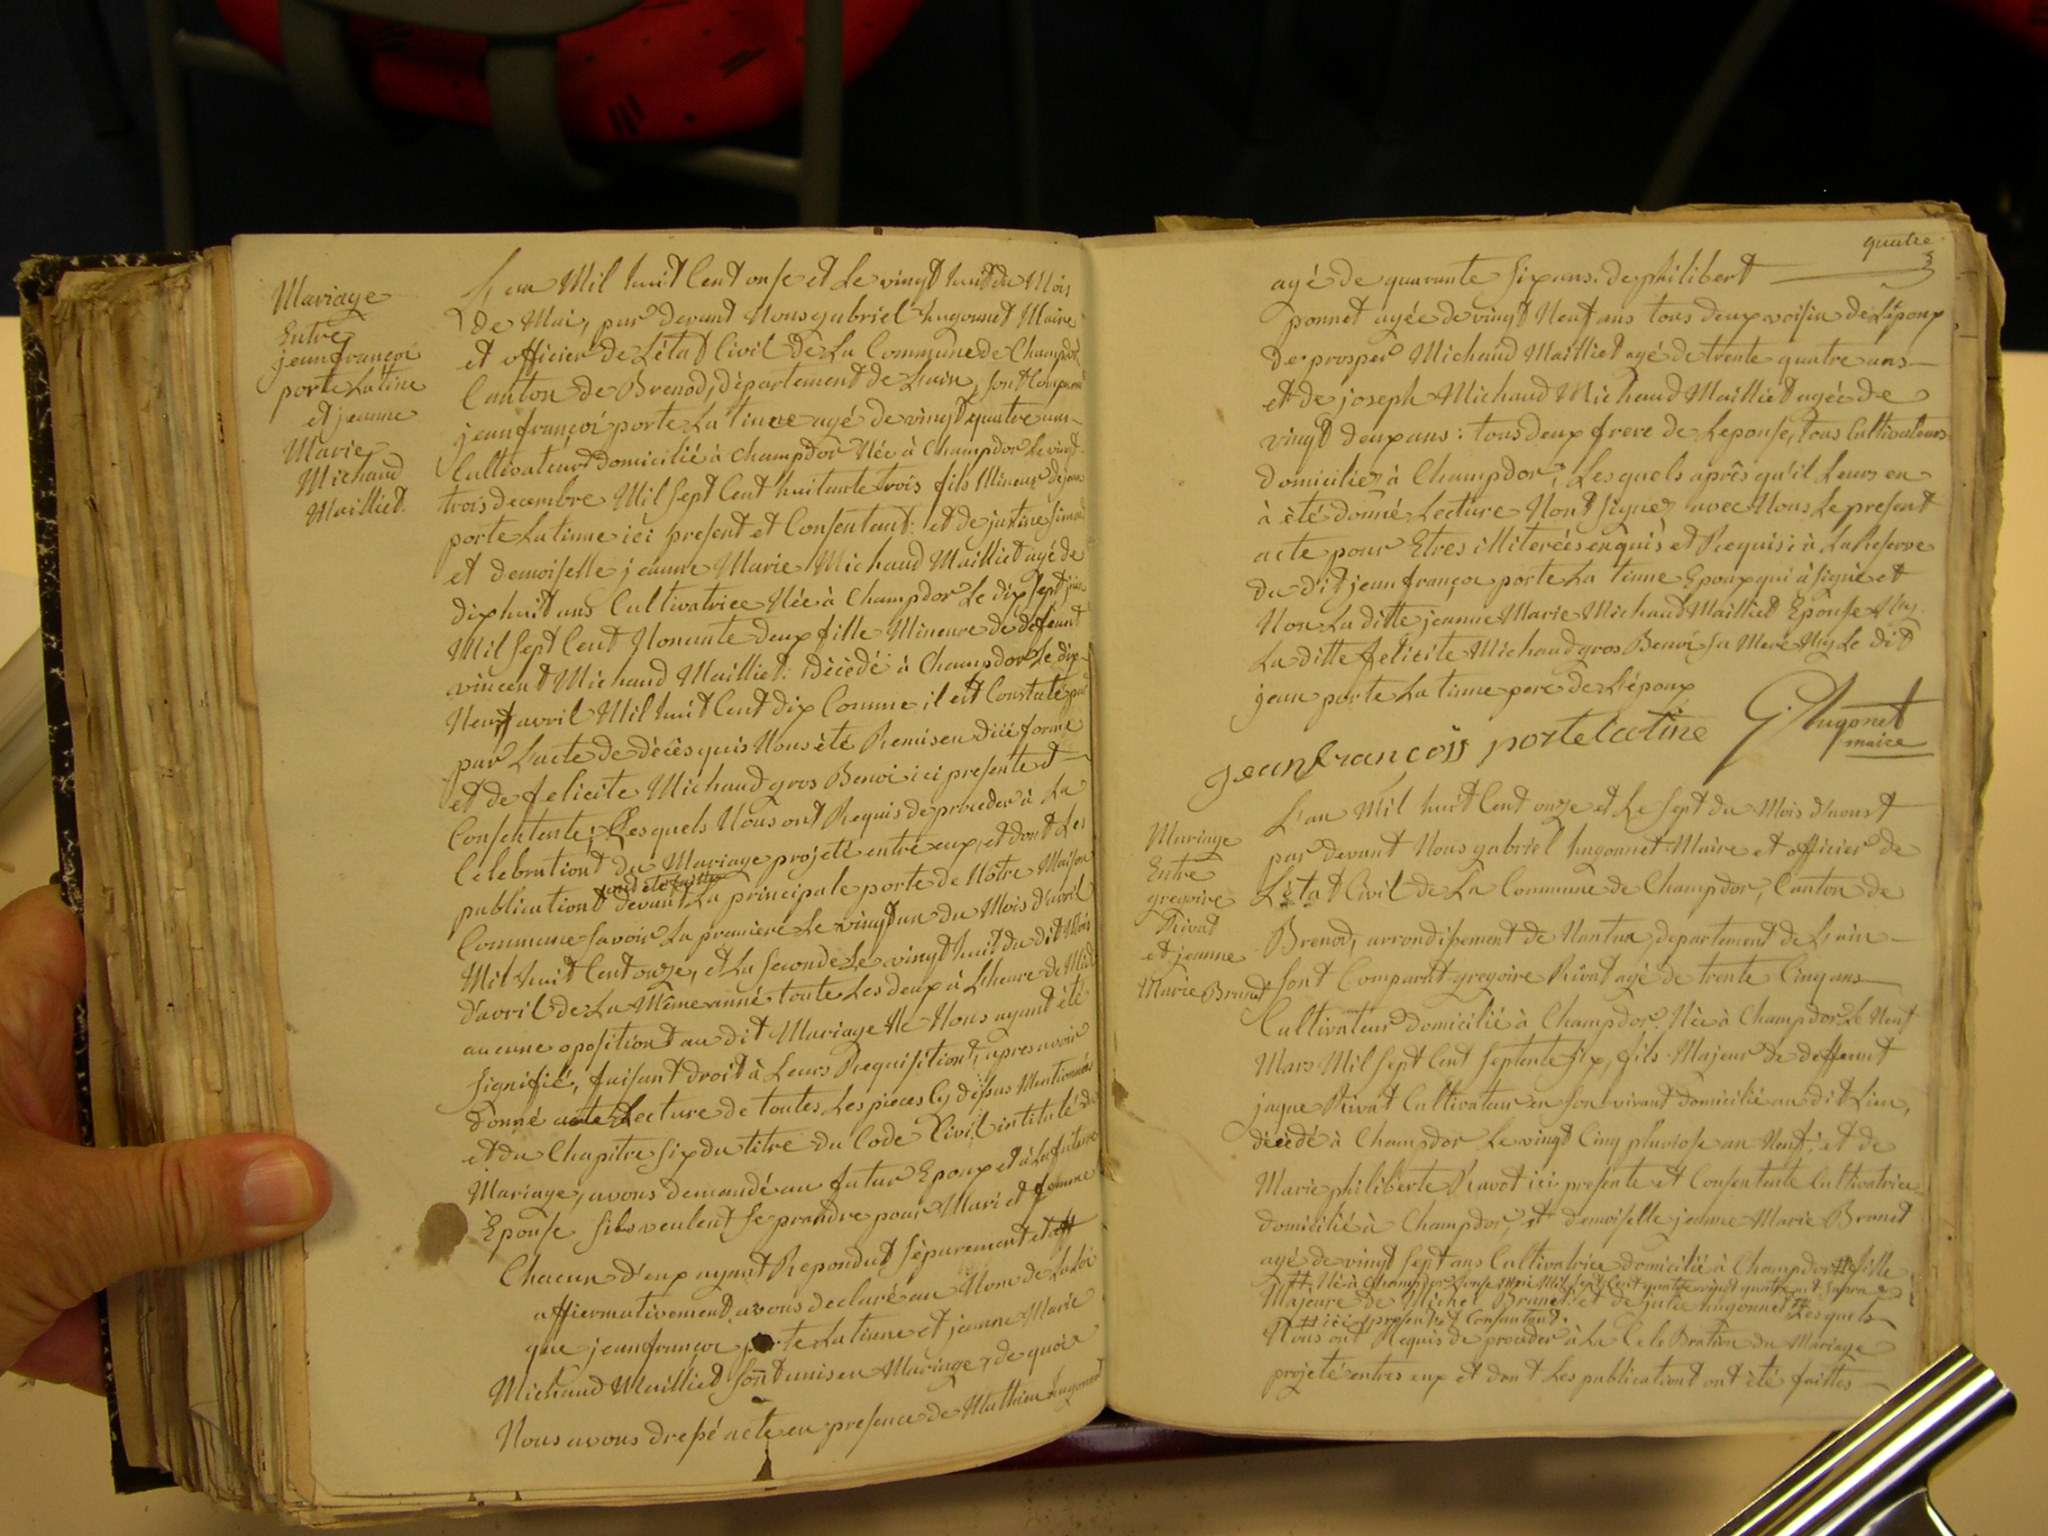 Mariage
Entre
jean françoi
porte Latine
et jeanne
Marie
Michaud
Mailliet.
L'an Mil huit Cent onse et Le vingt huit du Mois
de Mai, par devant Nous gabriel hugonnet Maire
et officier de L'état Civil de La Commune de Champdor
Canton de Brenod, département de L'ain, sont Comparu
jean françoi porte La tinne agé de vingt quatre ans
Cultivateur domicilié à Champdor Née à Champdor Le vingt
trois decembre Mil Sept Cent huitante trois fils Mineur de jean
porte La tinne ici present et Consentent: et de justine
et demoiselle jeanne Marie Michaud Mailliet agé de
dix huit ans Cultivatrice Née à Champdor Le dix Sept
Mil Sept Cent Nonante deux fille Mineure de defeunt
vincent Michaud Mailliet: décédé à Champdor Le dix
Neuf avril Mil huit Cent dix Comme il est Constaté
par L'acte de décès quis Nous été Remis en forme
et de felicite Michaud gros Benoi ici presente et
Consentente; Lesquels Nous ont Requis de proceder à La
Celebrationt du Mariage projeté entre eux, et dont Les
ont été faittes
publicationt devant La principale porte de Notre Maison
Commune Savoir La premiere Le vingt un du Mois d'avril
Mil huit Cent onze, et La Seconde Le vingt huit du dit Mois
d'avril de La Même anné toute Les deux à L'heure de Midi
aucune opositiont au dit Mariage Ne Nous ayant été
Signifié, faisant droit à Leurs Requisitiont, apres avoir
donné Lecture de toutes Les pieces Cy dessus Mentionnées
et du Chapitre Six du titre du Code Civil intitulé du
Mariage, avons demandé au futur Epoux et à La future
Epouse Sils veulent Se prendre pour Mari et femme
Chacun d'eux ayant Repondut Séparement et
affirmativement, avons declaré au Nom de La Loi
que jean françoi porte La tinne et jeanne Marie
Michaud Mailliet Sont unis en Mariage, de quoi
Nous avons dressé acte en presence de Mathieu hugonnet
quatre
agé de quarante Six ans. de philibert
ponnet agée de vingt Neuf ans tous deux voisin de L'époux
de prosper Michaud Mailliet agé de trente quatre ans
et de joseph Michaud Michaud Mailliet agée de
vingt deux ans: tous deux frere de Lepouse, tous Cultivateurs
domiciliez à Champdor; Lesquels après qu'il Leurs en
à été donné Lecture Nont Signez avec Nous Le present
acte pour Etres illiterées enquis et Requis; à La Reserve
du dit jean françoi porte La tinne Epoux qui à Signé et
Non La ditte jeanne Marie Michaud Mailliet Epouse Ny
La ditte felicite Michaud gros Benoi Sa Mere Ny Le dit
jean porte La tinne pere de L'époux
G. hugonet
maire
jean françois porte latine
Mariage
Entre
gregoire
Rivat
et jeanne
Marie Brunet
L'an Mil huit Cent onze et Le Sept du Mois d'aoust
par devant Nous gabriel hugonnet Maire et officier de
L'état Civil de La Commune de Champdor, Canton de
Brenod, arrondissement de Nantua, departement de L'ain
Sont Comparut gregoire Rivat agé de trente Cinq ans
Cultivateur domicilié à Champdor Née à Champdor Le Neuf
Mars Mil Sept Cent Septente Six, fils Majeur de deffunt
jaque Rivat Cultivateur en Son vivant domicilié au dit Lieu,
décédé à Champdor Le vingt Cinq pluviose an Neuf; et de
Marie philiberte Ravot ici presente et Consentente Cultivatrice
domicilié à Champdor, et demoiselle jeanne Marie Brunet
agé de vingt Sept ans Cultivatrice domicilié à Champdor # fille
# Née à Champdor Mil Sept Cent quatre vingt quatre
Majeure de Michel Brunet et de julie hugonnet # Lesquels
# ici present et Consentant.
Nous ont Requis de proceder à La Celebration du Mariage
projeté entres eux et dont Les publicationt ont été faittes